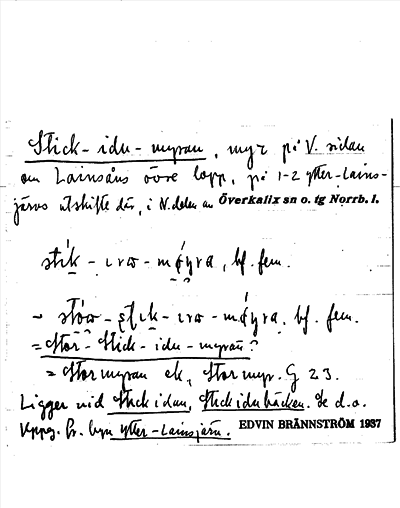 Stick-idu-myran, myr på V. sidan
om Lainsåns övre lopp, på 1-2 ytter-Lains-
järvs utskifte där, i N. delen av Överkalix sn o. tg Norrb. l.
stík - ıra - mǿyra, bf. fem.
~ stóra - stık - ıra - mǿyra, bf. fem.
= Stor-Stick-idu-myran?
= Stormyran ek, Stormyr. G 23.
Ligger vid Stickidan, Stickidubäcken. Se d.o.
Uppg. fr. byn ytter-Lainsjärv. EDVIN BRÄNNSTRÖM 1937